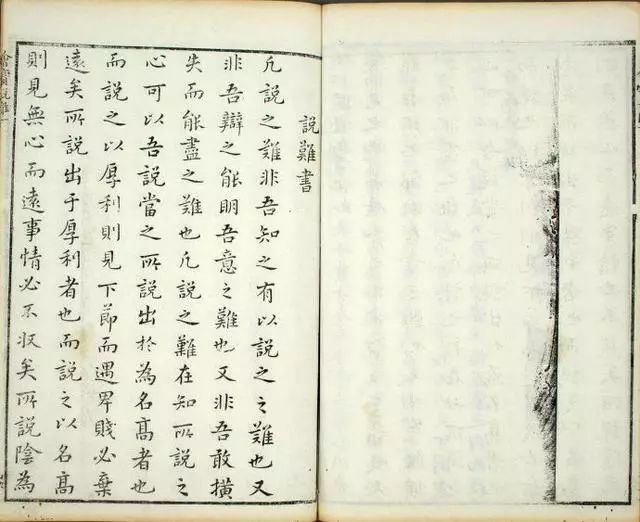 說難書
凡說之難非吾知之有以說之之難也又
非吾辯之能明吾意之難也又非吾敢橫
失而能盡之難也凡說之難在知所說之
心可以吾說當之所說出於為名高者也
而說之以厚利則見下節而遇卑賤必棄
遠矣所說出于厚利者也而說之以名高
則見無心而遠事情必不収矣所說陰為